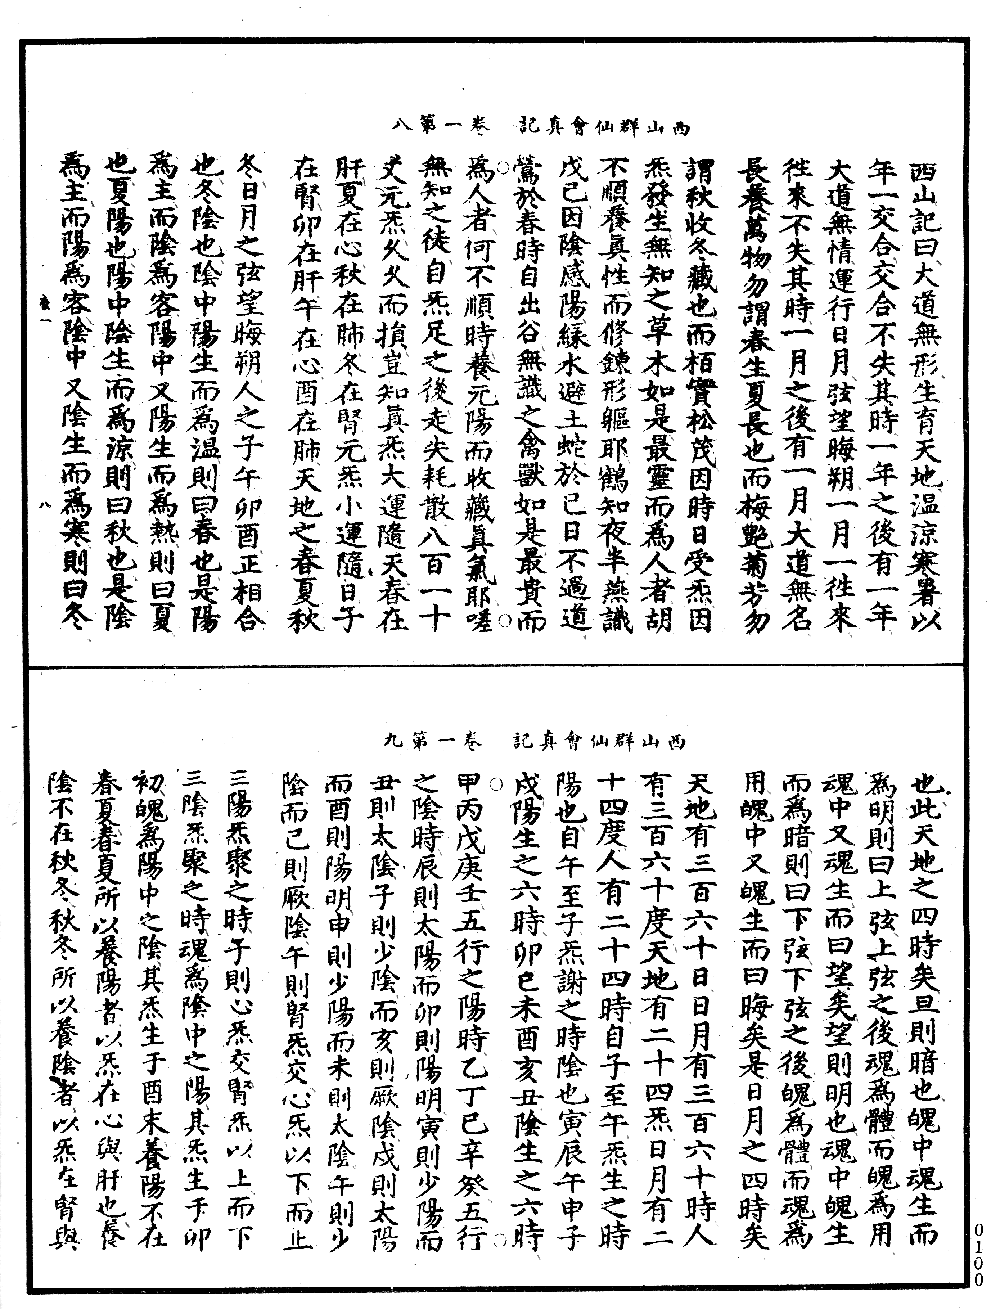 西山群仙會真記　卷一第八
西山記曰大道無形生育天地温涼寒暑以
年一交合交合不失其時一年之後有一年
大道無情運行日月弦望晦朔一月一徃來
徃來不失其時一月之後有一月大道無名
長養萬物勿謂春生夏長也而梅艶菊芳勿
謂秋收冬藏也而栢實松茂因時日受炁因
炁發生無知之草木如是最靈而為人者胡
不順養真性而修鍊形軀耶鶴知夜半燕識
戊己因陰感陽緑水避土蛇於已日不過道
鶯於春時自出谷無識之禽獸如是最貴而
為人者何不順時養元陽而收藏真氣耶嗟
無知之徒自炁足之後走失耗散八百一十
丈元炁乆乆而損豈知真炁大運隨天春在
肝夏在心秋在肺冬在腎元炁小運隨日子
在腎卯在肝午在心酉在肺天地之春夏秋
冬日月之弦望晦朔人之子午卯酉正相合
也冬陰也陰中陽生而為温則曰春也是陽
為主而陰為客陽中又陽生而為熱則曰夏
也夏陽也陽中陰生而為涼則曰秋也是陰
為主而陽為客陰中又陰生而為寒則曰冬
八
西山群仙會真記　卷一第九
也此天地之四時矣旦則暗也魄中魂生而
為明則曰上弦上弦之後魂為體而魄為用
魂中又魂生而曰望矣望則明也魂中魄生
而為暗則曰下弦下弦之後魄為體而魂為
用魄中又魄生而曰晦矣是日月之四時矣
天地有三百六十日日月有三百六十時人
有三百六十度天地有二十四炁日月有二
十四度人有二十四時自子至午炁生之時
陽也自午至子炁謝之時陰也寅辰午申子
戌陽生之六時卯巳未酉亥丑陰生之六時
甲丙戊庚壬五行之陽時乙丁巳辛癸五行
之陰時辰則太陽而卯則陽明寅則少陽而
丑則太陰子則少陰而亥則厥陰戌則太陽
而酉則陽明申則少陽而未則太陰午則少
陰而已則厥陰午則腎炁交心炁以下而止
三陽炁聚之時子則心炁交腎炁以上而下
三陰炁聚之時魂為陰中之陽其炁生于卯
初魄為陽中之陰其炁生于酉末養陽不在
春夏春夏所以養陽者以炁在心與肝也養
陰不在秋冬秋冬所以養陰者以炁在腎與
0100